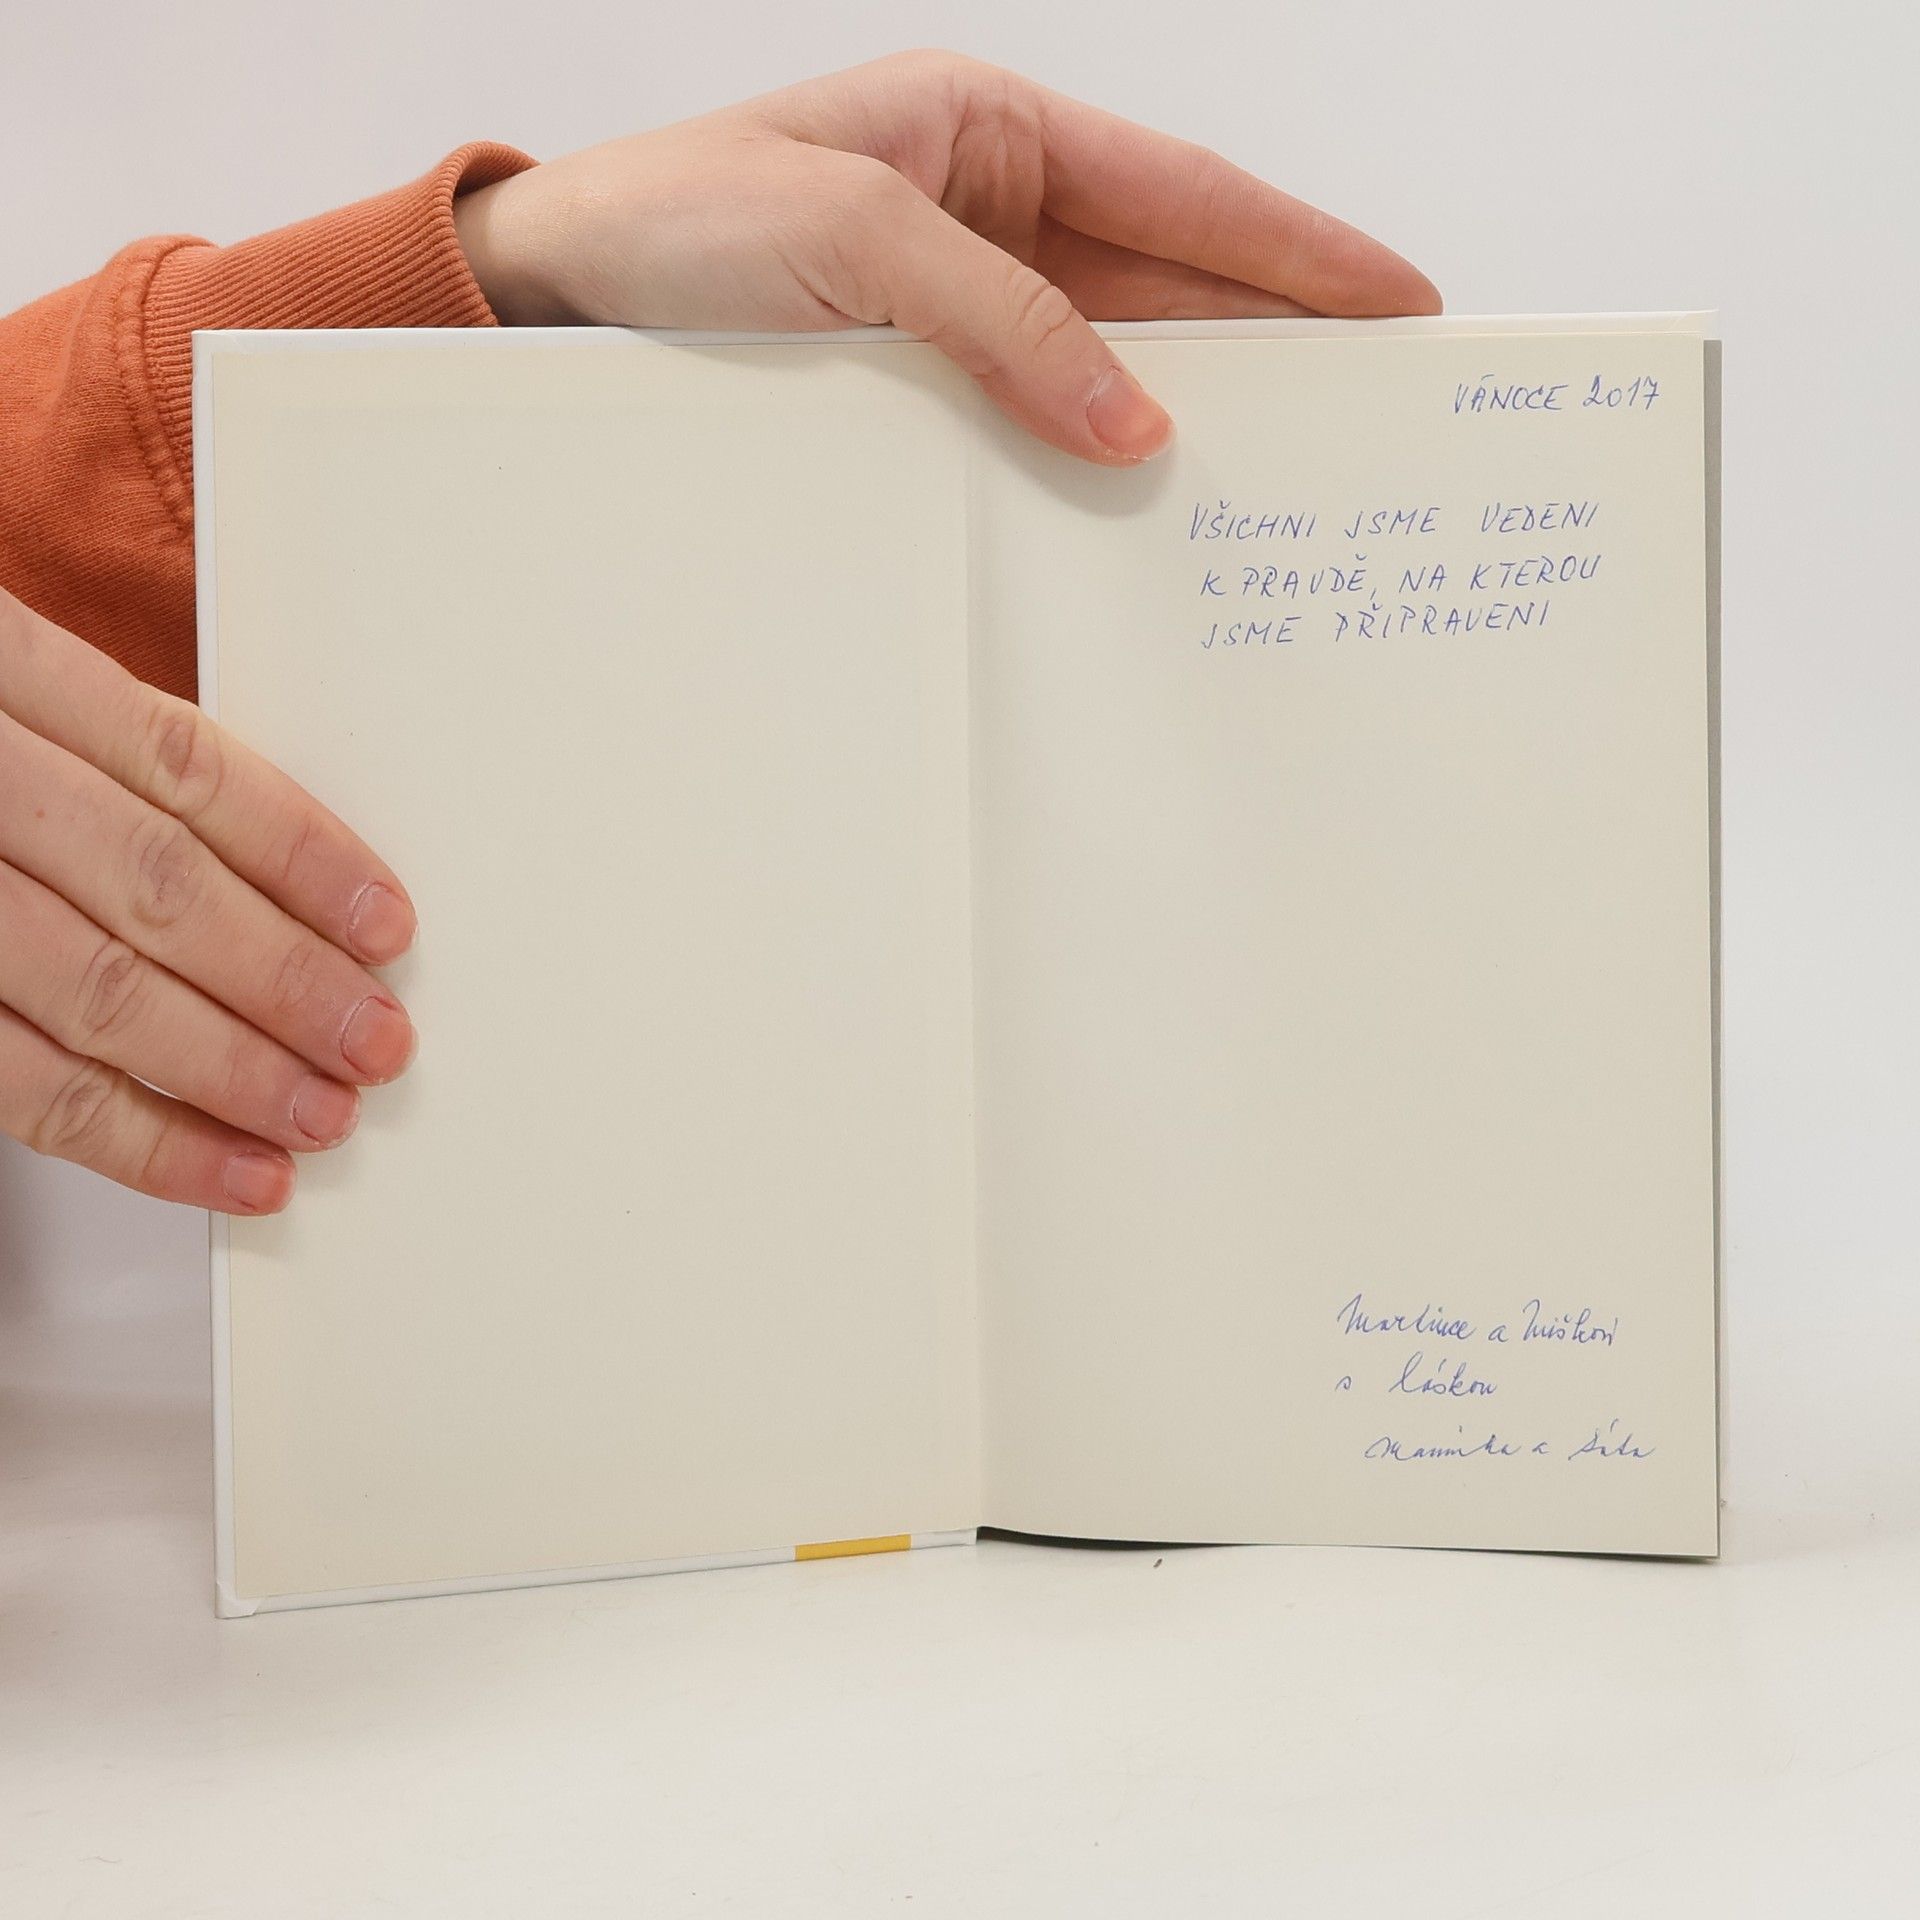 VÁNOCE 2017
VŠICHNI JSME VEDENI
K PRAVDĚ, NA KTEROU
JSME PŘIPRAVENI
Martince a Miškovi
s láskou
Maminka a táta